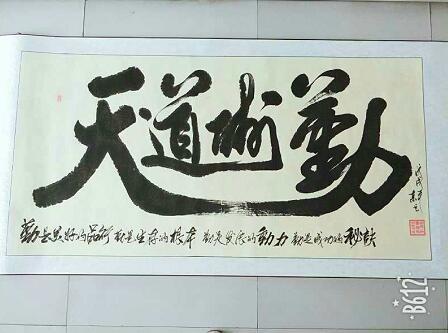 天道酬勤
勤是良好的品行 勤是生存的根本 勤是发展的動力 勤是成功的秘訣
戊戌年
B612